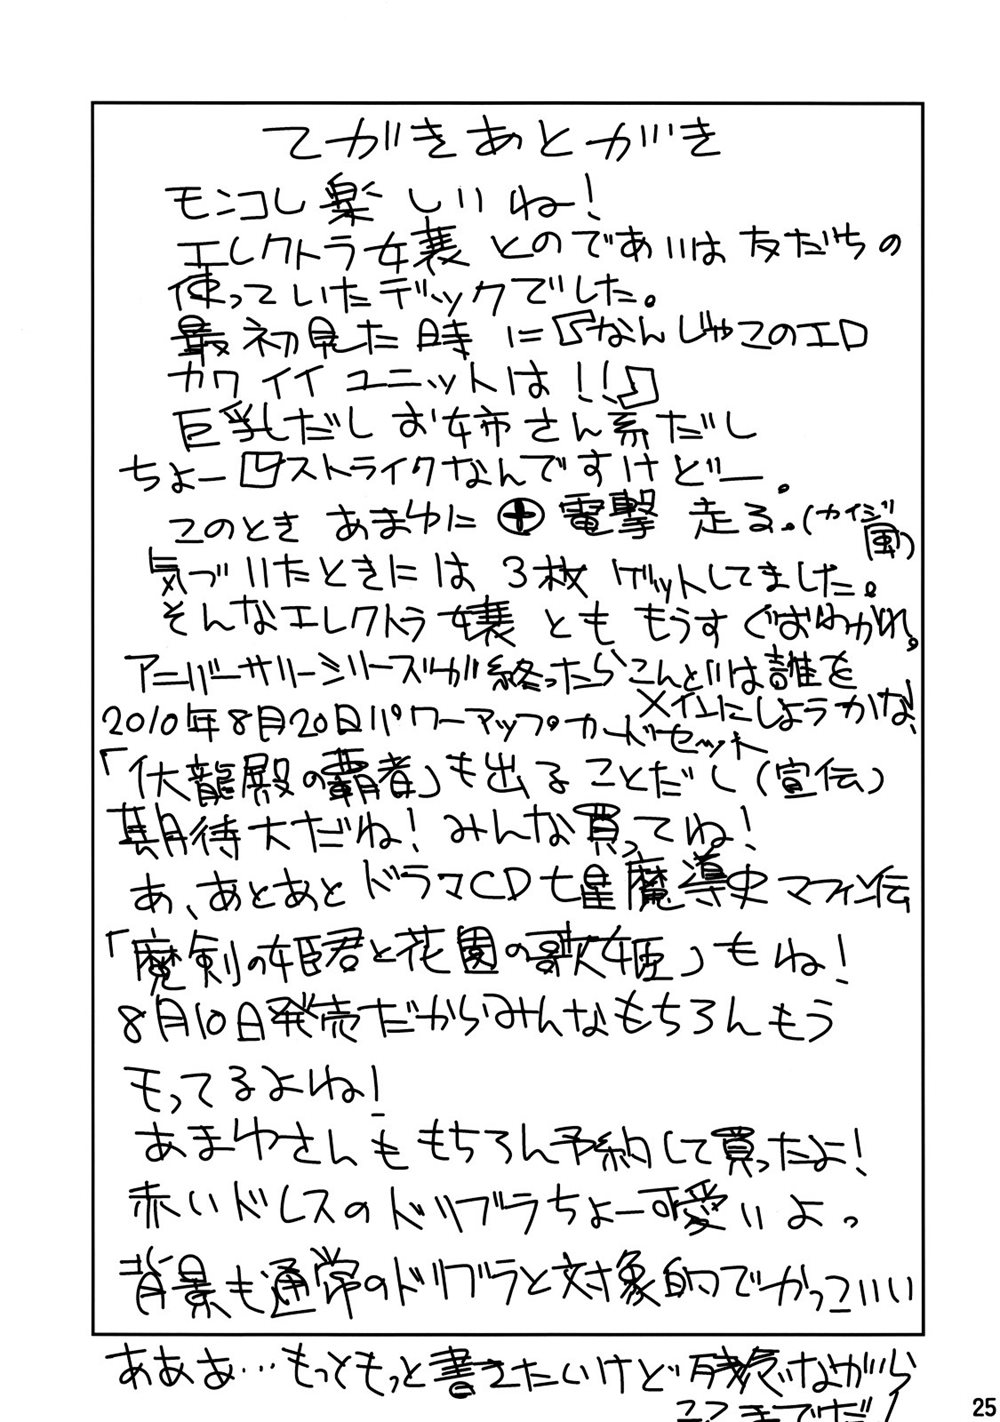 てがきあとがき
モンコレ楽しいね！
エレクトラ女嬢とのであいは友だちの
使っていたデックでした。
最初見た時に『なんじゃこのエロ
カワイイユニットは！！』
巨乳だしお姉さん系だし
ちょーストライクなんですけどー。
このときあまゆに⊕電撃走る。（カイジ
風）
気づいたときには3枚ゲットしてました。
そんなエレクトラ嬢とももうすぐおわかれ。
アニバーサリーシリーズが終ったらこんどは誰を
メインにしようかな、
2010年8月20日パワーアップ・カードセット
「伏龍殿の覇者」も出ることだし（宣伝）
期待大だね！みんな買ってね！
あ、あとあとドラマCD七星魔導史マフィン伝
「魔剣の姫君と花園の歌姫」もね！
8月10日発売だからみんなもちろんもう
モってるよね！
あまゆさんももちろん予約して買ったよ！
赤いドレスのドリブラちょー可愛いよっ
背景も通常のドリブラと対象的でかっこいい
あああ…もっともっと書きたいけど残念ながら
ここまでだ！
25